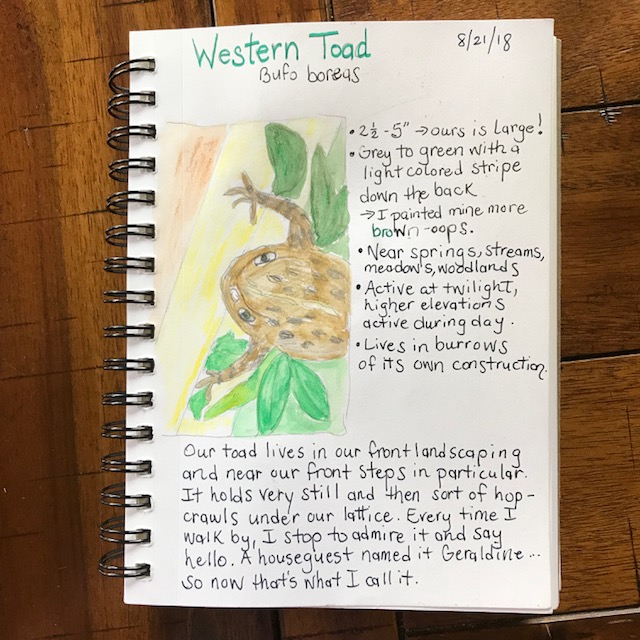 Western Toad
8/21/18
Bufo boreas
• 2½ - 5" → ours is large!
• Grey to green with a
light colored stripe
down the back
→ I painted mine more
brown - oops.
• Near springs, streams,
meadows, woodlands
• Active at twilight,
higher elevations
active during day.
• Lives in burrows
of its own construction.
Our toad lives in our front landscaping
and near our front steps in particular.
It holds very still and then sort of hop-
crawls under our lattice. Every time I
walk by, I stop to admire it and say
hello. A houseguest named it Geraldine...
so now that's what I call it.